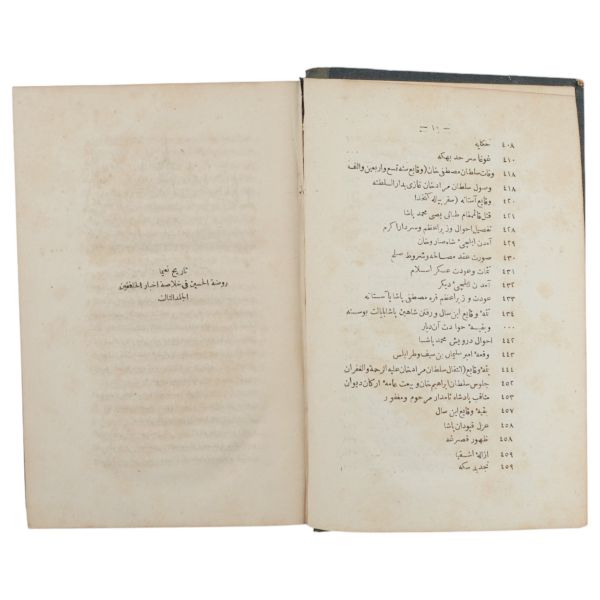 تاريخ نعيما
روضة الحسين فى خلاصة اخبار الخافقين
الجلد الثالث
— ١٠ —
٤٠٨ حكايه
٤١٠ غوغا سرحد بهكه
٤١٨ وفات سلطان مصطفى خان (وقايع سنه تسع واربعين والف)
٤١٨ وصول سلطان مراد خان غازى بدار السلطنه
٤٢٠ وقايع آستانه (سفر پياله كتخدا)
٤٢١ قتل قائممقام طبانى يصى محمد پاشا
٤٢٨ تفصيل احوال وزير اعظم وسردار اكرم
٤٢٩ آمدن ايلچئ شاه صارو خان
٤٣٠ صورت عقد مصالحه وشروط صلح
٤٣١ كمات وعودت عسكر اسلام
٤٣٢ آمدن ايلچئ ديكر
٤٣٣ عودت وزير اعظم قره مصطفى پاشا بآستانه
٤٣٤ تتمه وقايع اين سال ورفتن شاهين پاشا بايالت بوسنه
٠٠٠ وبقيه حوادث آن ديار
٤٤٢ احوال درويش محمد پاشا
٤٤٣ وقعه امير سليمان بن سيف وطرابلس
٤٤٤ بقيه وقايع (انتقال سلطان مراد خان عليه الرحمة والغفران)
٤٥٢ جلوس سلطان ابراهيم خان وبيعت عامه اركان ديوان
٤٥٣ مناقب پادشاه نامدار مرحوم ومغفور
٤٥٧ بقيه وقايع اين سال
٤٥٨ عزل قپودان پاشا
٤٥٨ ظهور قصر شه
٤٥٩ ازاله اشقيا
٤٥٩ تجديد سكه